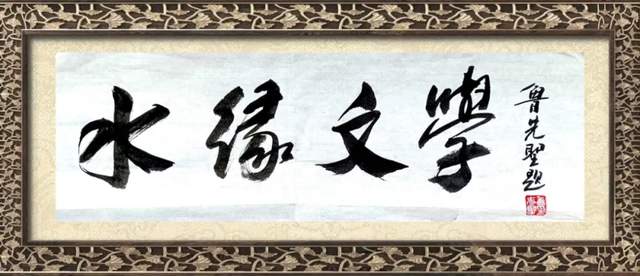 水缘文學
魯先聖題